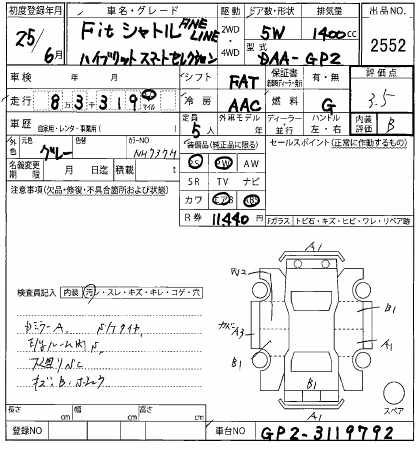 初度登録年月
25年
6月
車名・グレード
Fit シャトル FINE LINE
ハイブリット スマートセレクション
駆動
2WD・4WD
ドア数・形状
5W
排気量
1400cc
型式
DAA-GP2
出品NO.
2552
車検 年 月
シフト FAT
保証書 有・無
評価点 3.5
走行 8万3千319 マイル
冷房 AAC
燃料 G
車歴 自家用・レンタ・事業用( )
定員 5人
外車モデル 年
ディーラー・並行
ハンドル 左・右
内装評価 B
外色 元色 グレー
色替
カラーNO NH737M
名義変更期限 月 日迄
積載 t
装備品(純正品に限る)
PS PW AW
SR TV ナビ
カワ エアB ABS
R券 11,440円
セールスポイント(正常に作動するもの)
注意事項(欠品・修復・不具合箇所および状態)
Fガラス トビ石・キズ・ヒビ・ワレ・リペア跡
検査員記入 内装 汚・スレ・キズ・キレ・コゲ・穴
A1
W2
B1
A3
A1
B1
B1
A1
スペア
長さ cm
幅 cm
高さ cm
登録NO
車台NO GP2-3119792